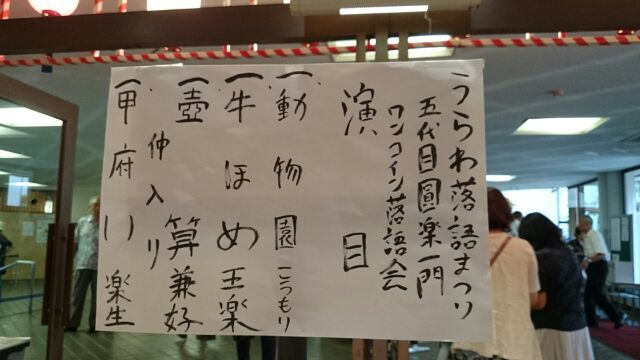 うらわ落語まつり
五代目圓楽一門
ワンコイン落語会
演目
一、動物園 こうもり
一、牛ほめ 王楽
一、壺算 兼好
仲入り
一、甲府い 楽生